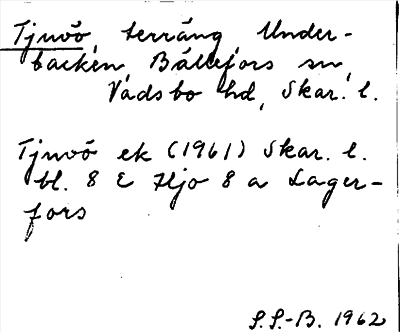 Tjuvö terräng Under-
backen, Bällefors sn,
Vadsbo hd, Skar. l.
Tjuvö ek (1961) Skar. l.
bl. 8 E Hjo 8 a Lager-
fors
S.S.-B. 1962